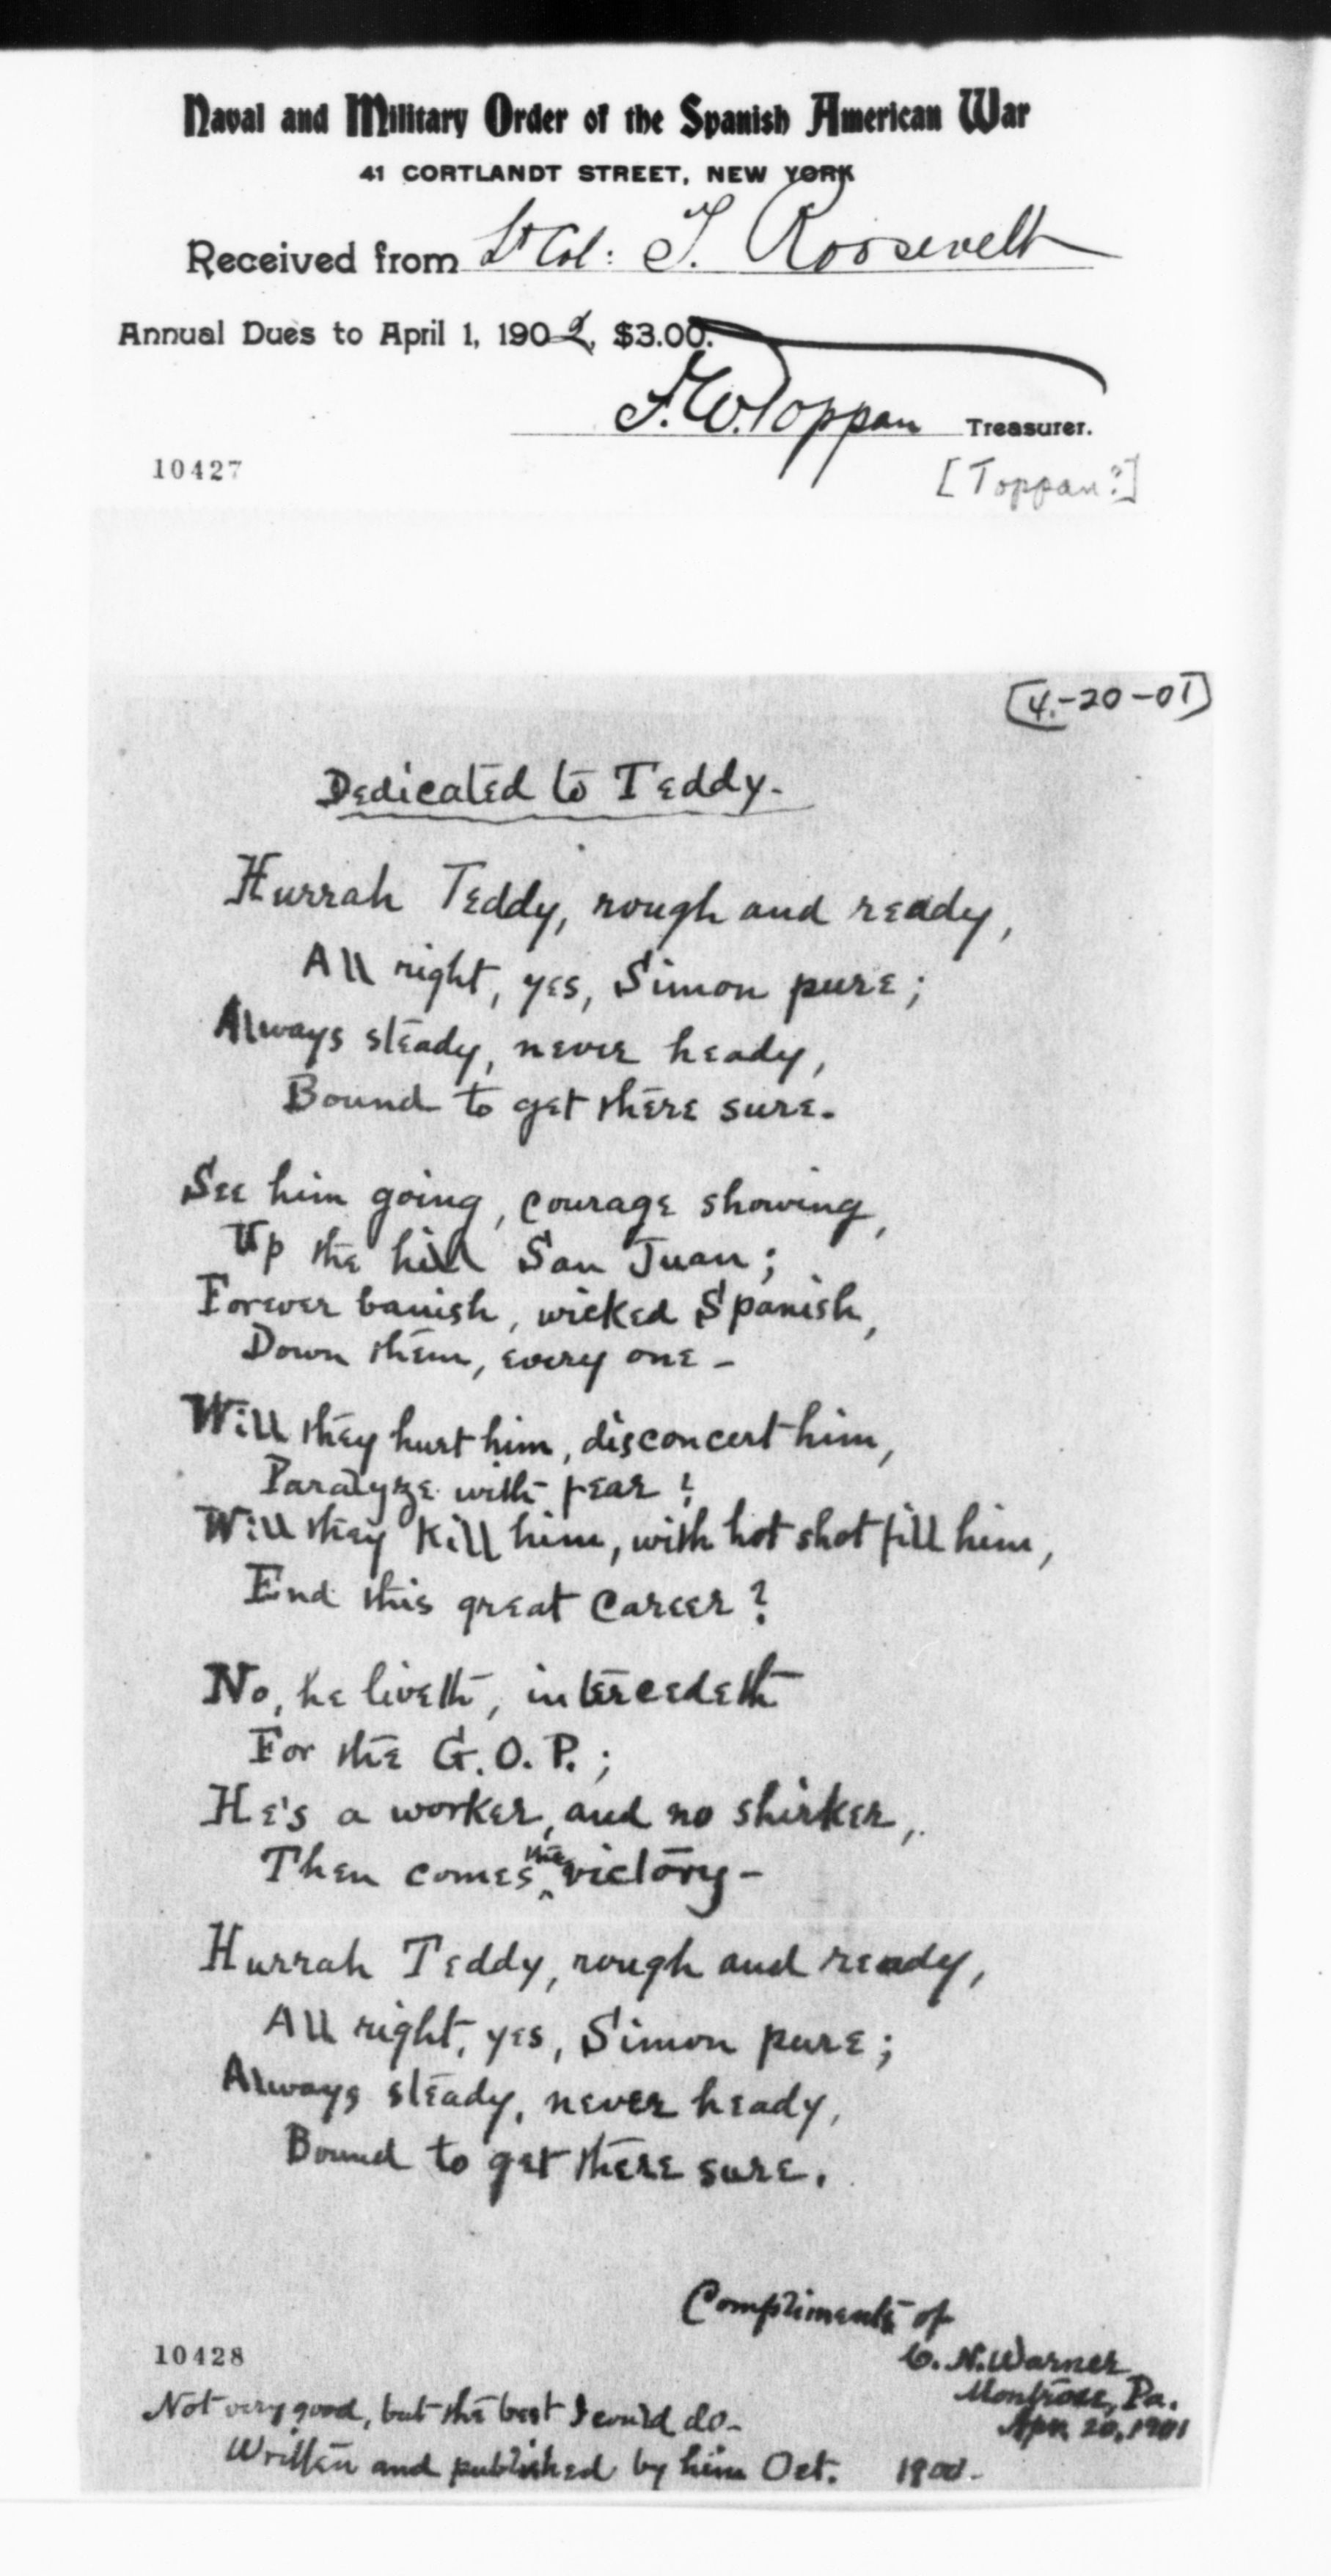 Naval and Military Order of the Spanish American War
41 CORTLANDT STREET, NEW YORK
Received from Lt Col: T. Roosevelt
Annual Dues to April 1, 1902, $3.00.
F.W. Toppan Treasurer.
10427
[Toppan?]
[4-20-01]
Dedicated to Teddy.
Hurrah Teddy, rough and ready,
All right, yes, Simon pure;
Always steady, never heady,
Bound to get there sure.
See him going, courage showing,
Up the hill San Juan;
Forever banish, wicked Spanish,
Down them, every one -
Will they hurt him, disconcert him,
Paralyze with fear?
Will they kill him, with hot shot fill him,
End this great career?
No, he liveth, intercedeth
For the G.O.P.;
He's a worker, and no shirker,
Then comes the victory -
Hurrah Teddy, rough and ready,
All right, yes, Simon pure;
Always steady, never heady,
Bound to get there sure.
Compliments of
C. N. Warner
10428
Montrose, Pa.
Apr. 20, 1901
Not very good, but the best I could do -
Written and published by him Oct. 1900.